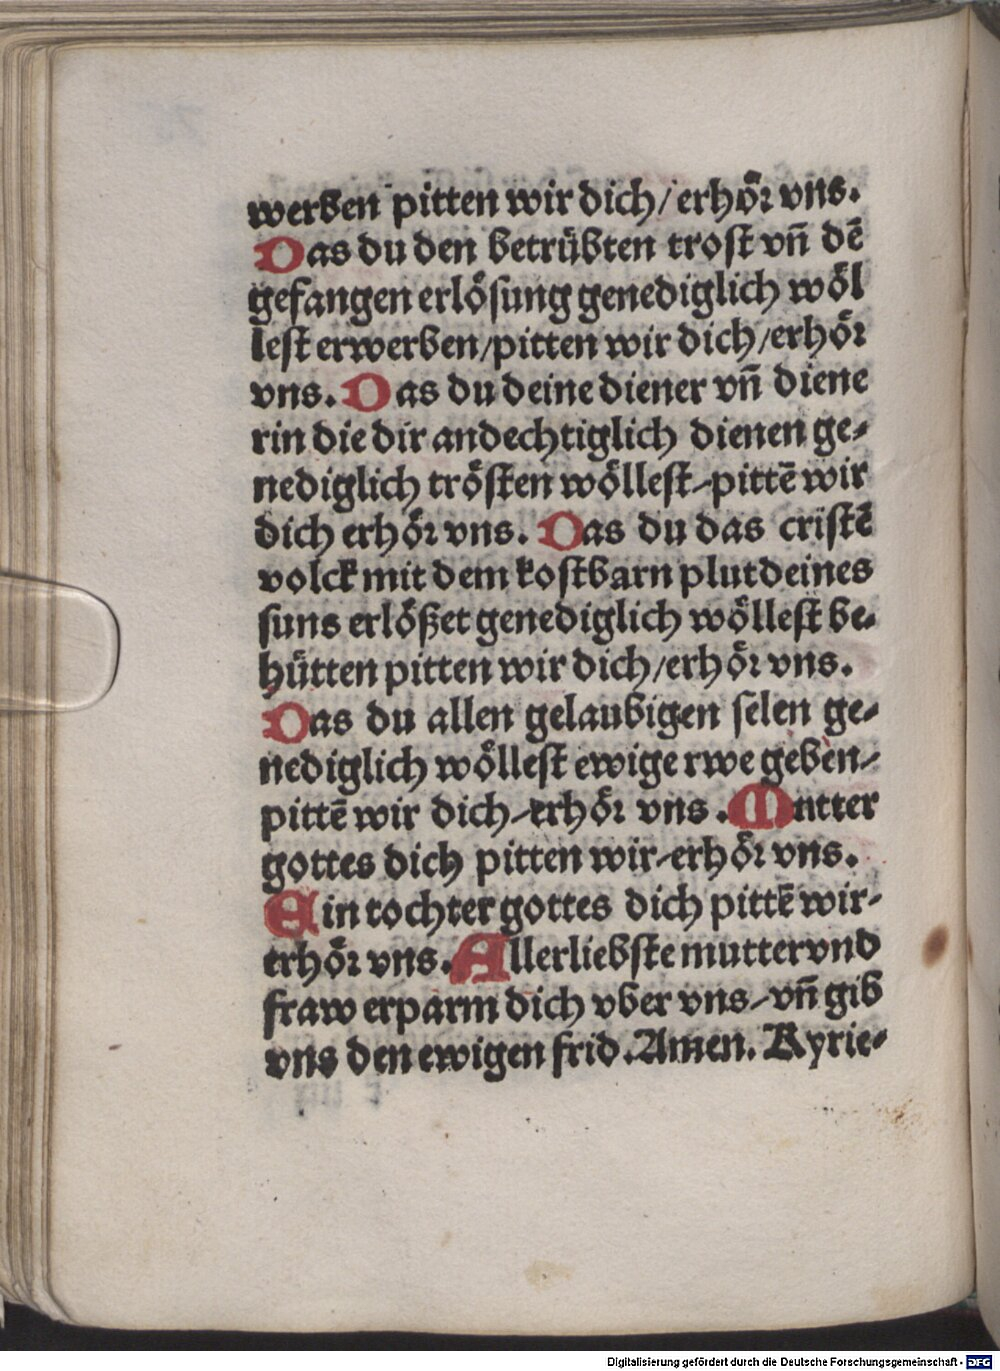 werben pitten wir dich/ erhör vns.
Das du den betrübten trost vn̄ dē
gefangen erlösung genediglich wöl
lest erwerben/pitten wir dich/erhör
vns. Das du deine diener vn̄ diene
rin die dir andechtiglich dienen ge-
nediglich trösten wöllest-pittē wir
dich erhör vns. Das du das cristē
volck mit dem kostbarn plut deines
suns erlößet genediglich wöllest be-
hütten pitten wir dich/erhör vns.
Das du allen gelaubigen selen ge-
nediglich wöllest ewige rwe geben-
pittē wir dich-erhör vns. Mutter
gottes dich pitten wir-erhör vns.
Ein tochter gottes dich pittē wir-
erhör vns. Allerliebste mutter vnd
fraw erparm dich vber vns-vn̄ gib
vns den ewigen frid. Amen. Kyrie-
Digitalisierung gefördert durch die Deutsche Forschungsgemeinschaft - DFG